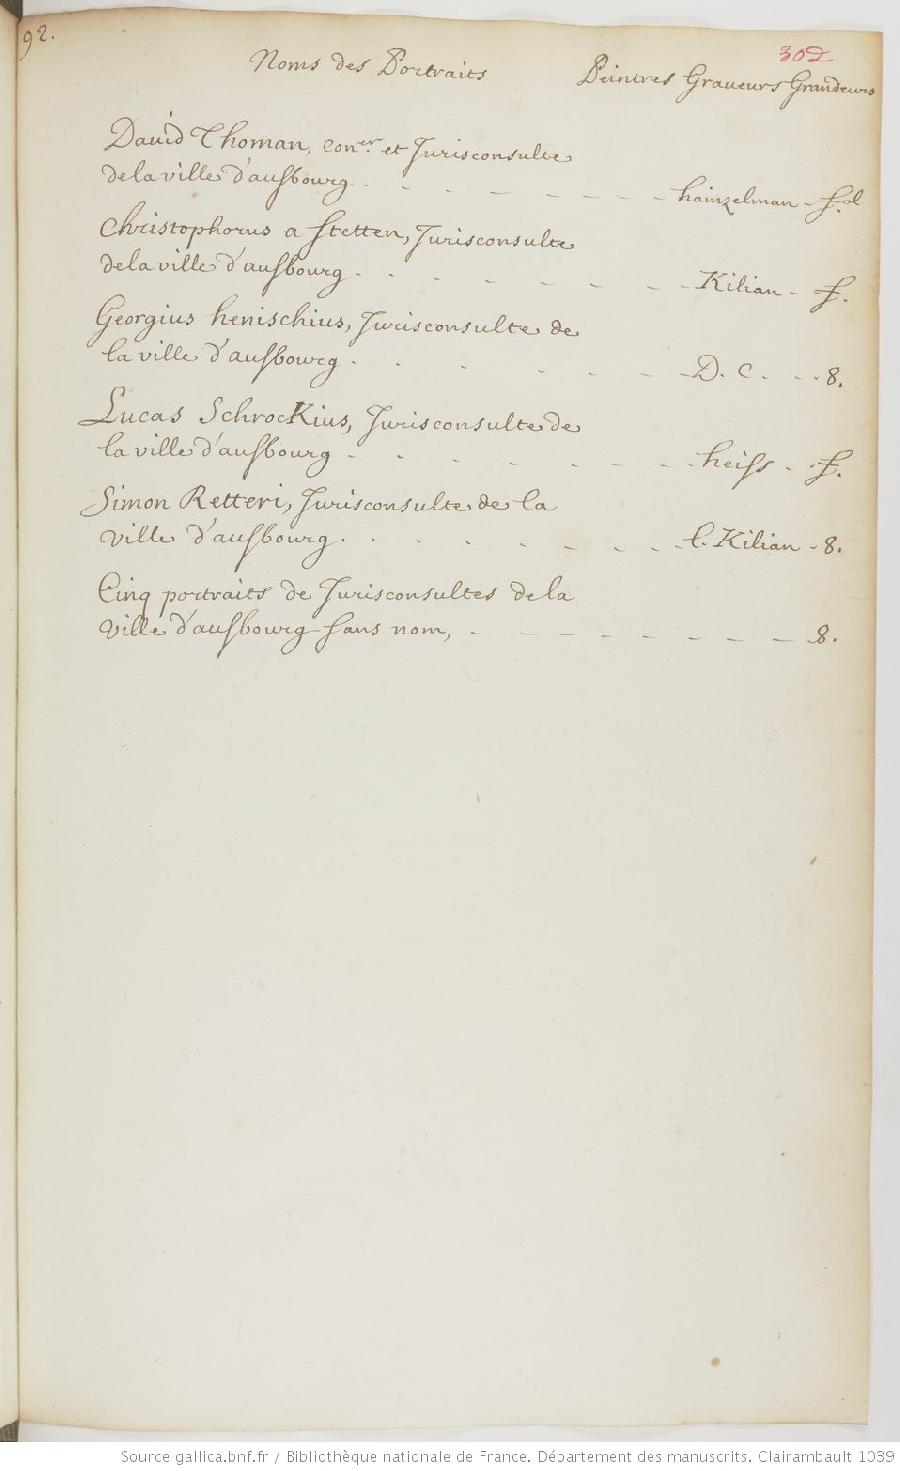 92.
302
Noms des Portraits Peintres Graueurs Grandeurs
Dauid Thoman, Coner. et Jurisconsulte
de la ville d'ausbourg. - - - - - - - hainzelman - fol
Christophorus a Stetten, Jurisconsulte
de la ville d'ausbourg. - - - - - - - Kilian - f.
Georgius henischius, Jurisconsulte de
la ville d'ausbourg. - - - - - - D. C. - - 8.
Lucas Schrockius, Jurisconsulte de
la ville d'ausbourg - - - - - - - heiss - f.
Simon Retteri, Jurisconsulte de la
ville d'ausbourg. - - - - - - - l. Kilian - 8.
Cinq portraits de Jurisconsultes de la
ville d'ausbourg sans nom, - - - - - - - 8.
Source gallica.bnf.fr / Bibliothèque nationale de France. Département des manuscrits. Clairambault 1039